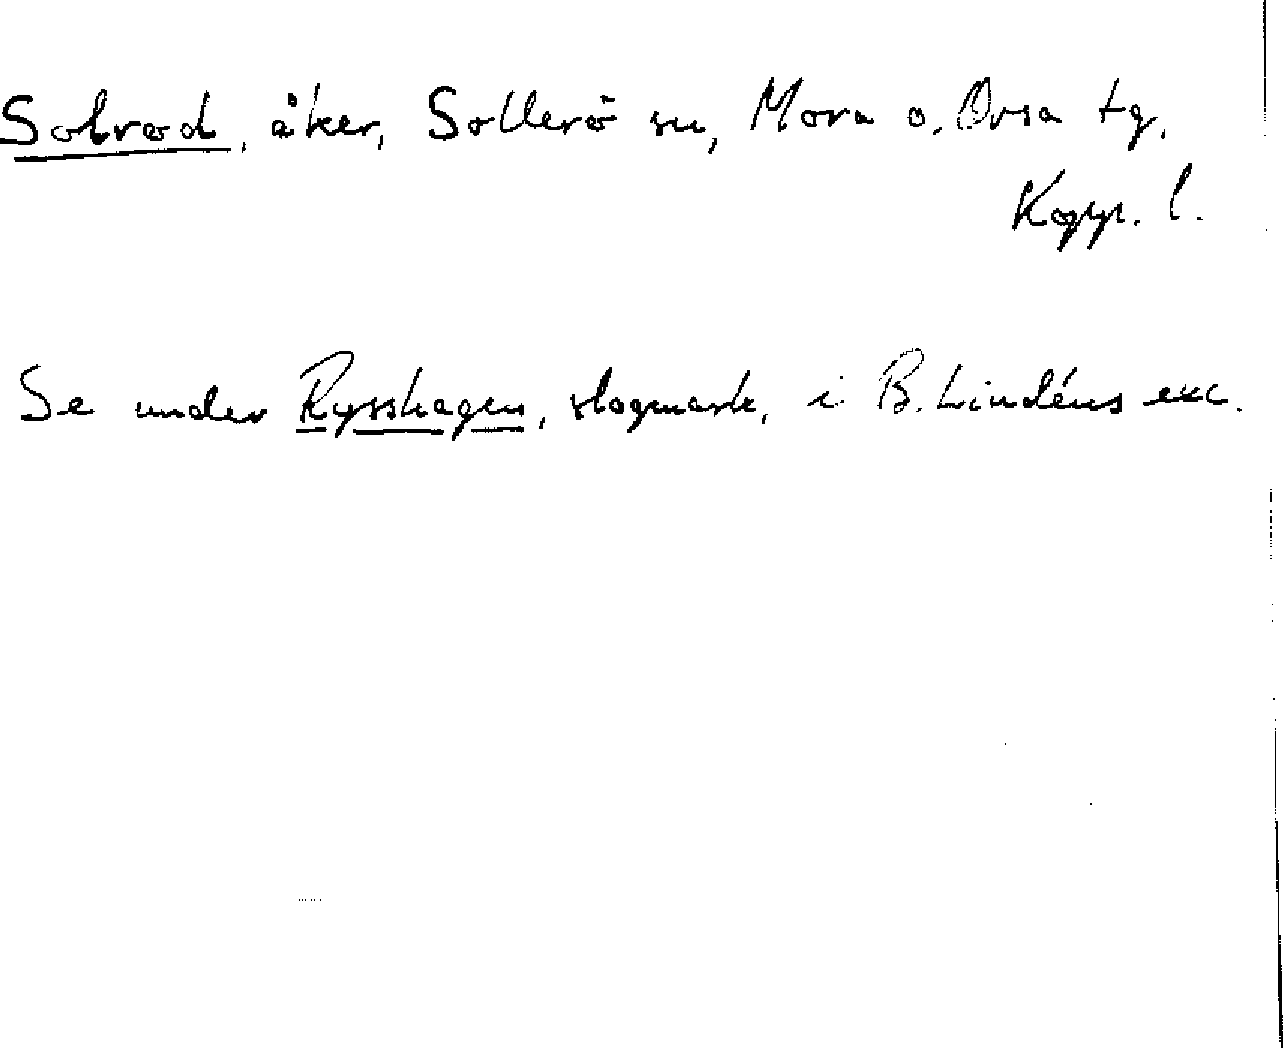 Solrød, åker, Sollerö sn, Mora o. Orsa tg.
Kopp. l.
Se under Rysshagen, slogmark, i B. Lindéns exc.